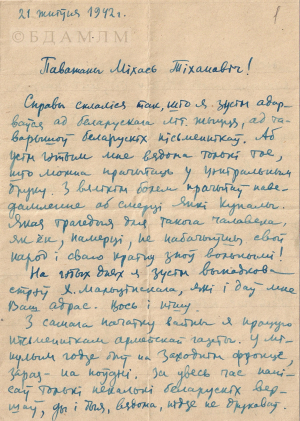 21 жніўня 1942 г.
1
©БДАМЛМ
Паважаны Міхась Ціханавіч!
Справы склаліся так, што я зусім адар-
ваўся ад беларускага літ. жыцця, ад та-
варышоў беларускіх пісьменнікаў. Аб
усім гэтым мне вядома толькі тое,
што можна прачытаць у цэнтральным
друку. З вялікім болем прачытаў паве-
дамленне аб смерці Янкі Купалы.
Якая трагедыя для такога чалавека,
як ён, памерці, не пабачыўшы свой
народ і сваю краіну зноў вольнымі!
На гэтых днях я зусім выпадкова
стрэў Х. Мальцінскага, які і даў мне
Ваш адрас. Вось і пішу.
З самага пачатку вайны я працую
пісьменнікам армейскай газеты. У мі-
нулым годзе быў на Заходнім фронце,
зараз - на поўдні. За увесь час напі-
саў толькі некалькі беларускіх вер-
шаў, ды і тыя, вядома, нідзе не друкаваў.